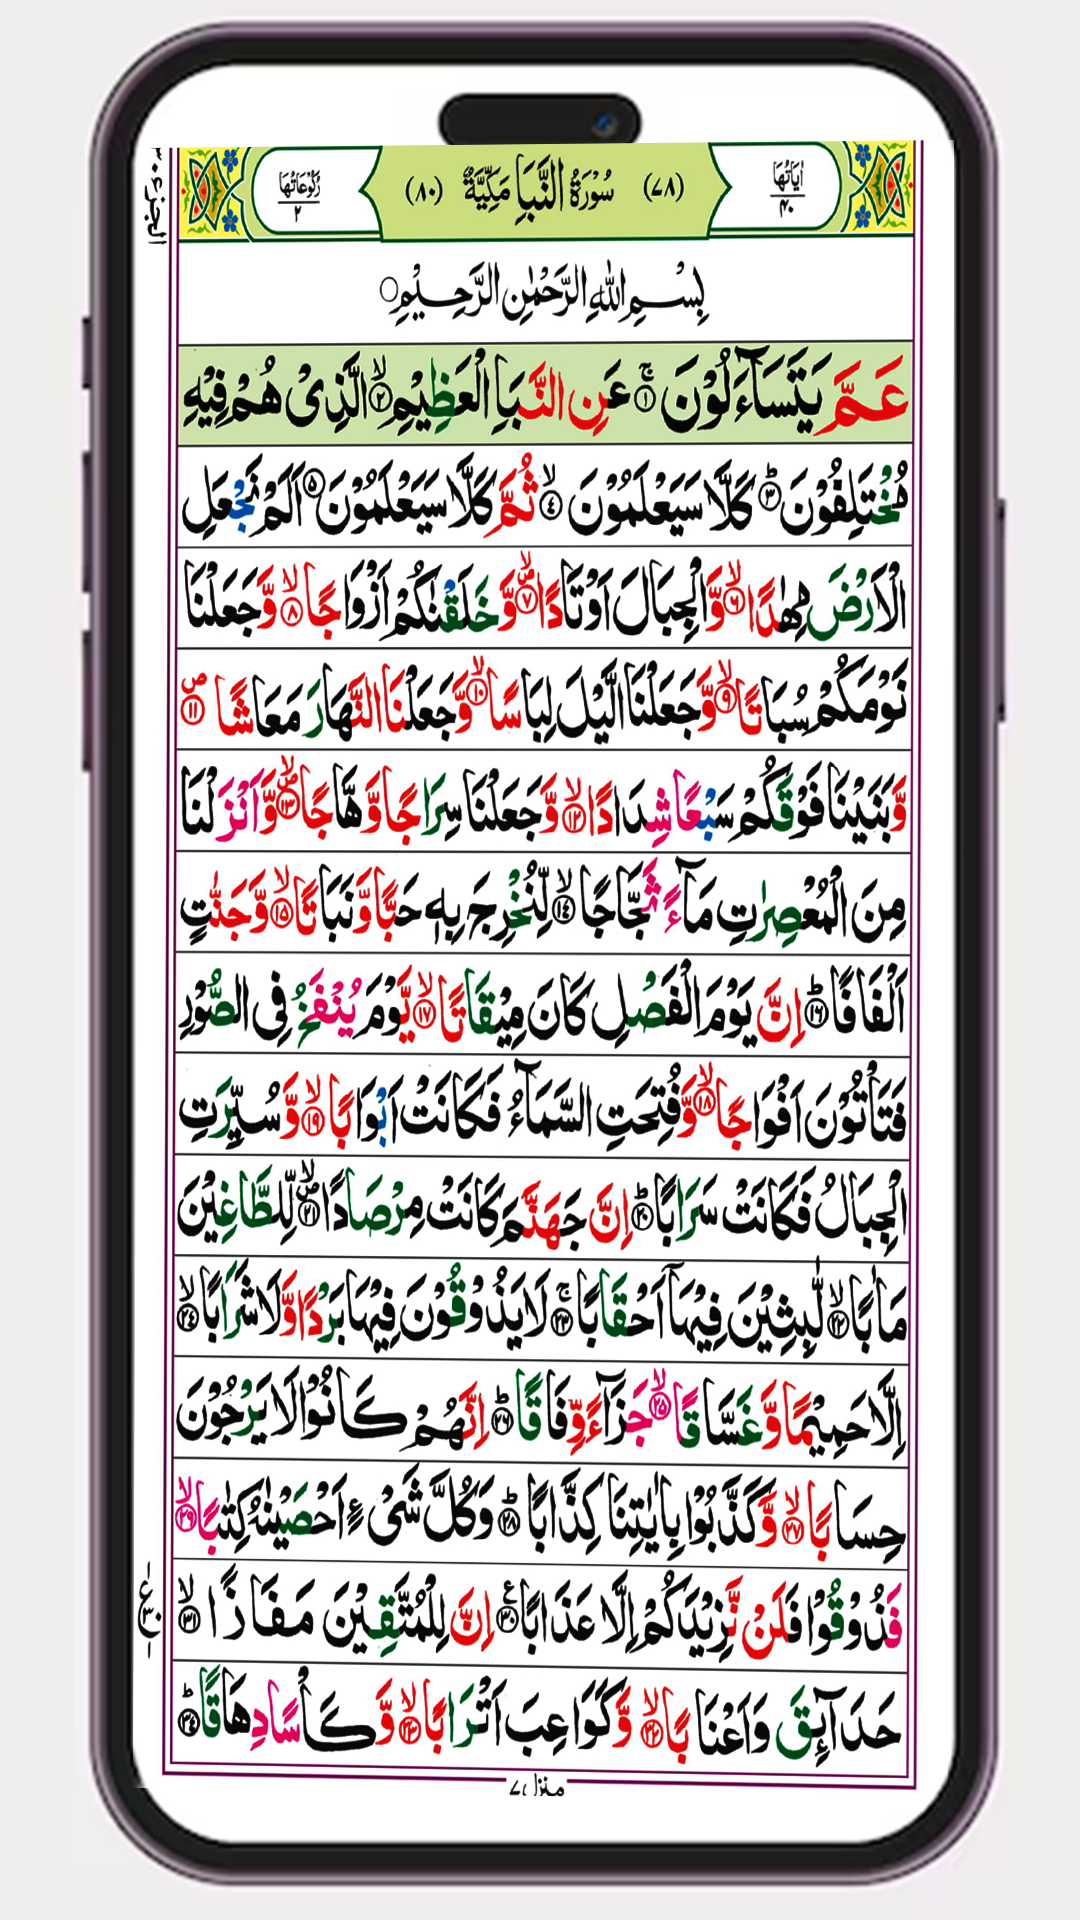 الجزء ٣٠
اٰيَاتُهَا ٤٠ (٧٨) سُوْرَةُ النَّبَاِ مَكِّيَّةٌ (٨٠) رُكُوْعَاتُهَا ٢
بِسْمِ اللّٰهِ الرَّحْمٰنِ الرَّحِيْمِ
عَمَّ يَتَسَآءَلُوْنَ ۚ‏﴿۱﴾ عَنِ النَّبَاِ الْعَظِيْمِ ۙ‏﴿۲﴾ الَّذِىْ هُمْ فِيْهِ
مُخْتَلِفُوْنَ ؕ‏﴿۳﴾ كَلَّا سَيَعْلَمُوْنَ ۙ‏﴿۴﴾ ثُمَّ كَلَّا سَيَعْلَمُوْنَ ‏﴿۵﴾ اَلَمْ نَجْعَلِ
الْاَرْضَ مِهٰدًا ۙ‏﴿۶﴾ وَّالْجِبَالَ اَوْتَادًا ۪ۙ‏﴿۷﴾ وَّخَلَقْنٰكُمْ اَزْوَاجًا ۙ‏﴿۸﴾ وَّجَعَلْنَا
نَوْمَكُمْ سُبَاتًا ۙ‏﴿۹﴾ وَّجَعَلْنَا الَّيْلَ لِبَاسًا ۙ‏﴿۱۰﴾ وَّجَعَلْنَا النَّهَارَ مَعَاشًا ۪‏﴿۱۱﴾
وَّبَنَيْنَا فَوْقَكُمْ سَبْعًا شِدَادًا ۙ‏﴿۱۲﴾ وَّجَعَلْنَا سِرَاجًا وَّهَّاجًا ۪ۙ‏﴿۱۳﴾ وَّاَنْزَلْنَا
مِنَ الْمُعْصِرٰتِ مَآءً ثَجَّاجًا ۙ‏﴿۱۴﴾ لِّنُخْرِجَ بِهٖ حَبًّا وَّنَبَاتًا ۙ‏﴿۱۵﴾ وَّجَنّٰتٍ
اَلْفَافًا ؕ‏﴿۱۶﴾ اِنَّ يَوْمَ الْفَصْلِ كَانَ مِيْقَاتًا ۙ‏﴿۱۷﴾ يَّوْمَ يُنْفَخُ فِى الصُّوْرِ
فَتَاْتُوْنَ اَفْوَاجًا ۙ‏﴿۱۸﴾ وَّفُتِحَتِ السَّمَآءُ فَكَانَتْ اَبْوَابًا ۙ‏﴿۱۹﴾ وَّسُيِّرَتِ
الْجِبَالُ فَكَانَتْ سَرَابًا ؕ‏﴿۲۰﴾ اِنَّ جَهَنَّمَ كَانَتْ مِرْصَادًا ۪ۙ‏﴿۲۱﴾ لِّلطَّاغِيْنَ
مَاٰبًا ۙ‏﴿۲۲﴾ لّٰبِثِيْنَ فِيْهَاۤ اَحْقَابًا ۚ‏﴿۲۳﴾ لَا يَذُوْقُوْنَ فِيْهَا بَرْدًا وَّلَا شَرَابًا ۙ‏﴿۲۴﴾
اِلَّا حَمِيْمًا وَّغَسَّاقًا ۙ‏﴿۲۵﴾ جَزَآءً وِّفَاقًا ؕ‏﴿۲۶﴾ اِنَّهُمْ كَانُوْا لَا يَرْجُوْنَ
حِسَابًا ۙ‏﴿۲۷﴾ وَّكَذَّبُوْا بِاٰيٰتِنَا كِذَّابًا ؕ‏﴿۲۸﴾ وَكُلَّ شَىْءٍ اَحْصَيْنٰهُ كِتٰبًا ۙ‏﴿۲۹﴾
فَذُوْقُوْا فَلَنْ نَّزِيْدَكُمْ اِلَّا عَذَابًا ‏﴿۳۰﴾ اِنَّ لِلْمُتَّقِيْنَ مَفَازًا ۙ‏﴿۳۱﴾
حَدَآئِقَ وَاَعْنَابًا ۙ‏﴿۳۲﴾ وَّكَوَاعِبَ اَتْرَابًا ۙ‏﴿۳۳﴾ وَّكَاْسًا دِهَاقًا ؕ‏﴿۳۴﴾
منزل ٧